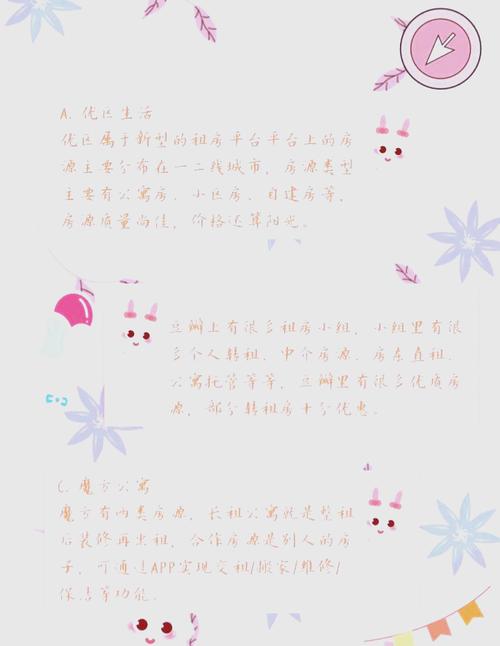 A. 优区生活
优区属于新型的租房平台平台上的房
源主要分布在一二线城市，房源类型
主要有公寓房、小区房、自建房等，
房源质量尚佳，价格还算阳光。
豆瓣上有很多租房小组，小组里有很
多个人转租、中介房源、房东直租、
公寓托管等等，豆瓣里有很多优质房
源，部分转租房十分优惠。
C. 魔方公寓
魔方有两类房源，长租公寓就是整租
后装修再出租，合作房源是别人的房
子，可通过APP实现交租/搬家/维修/
保洁等功能。